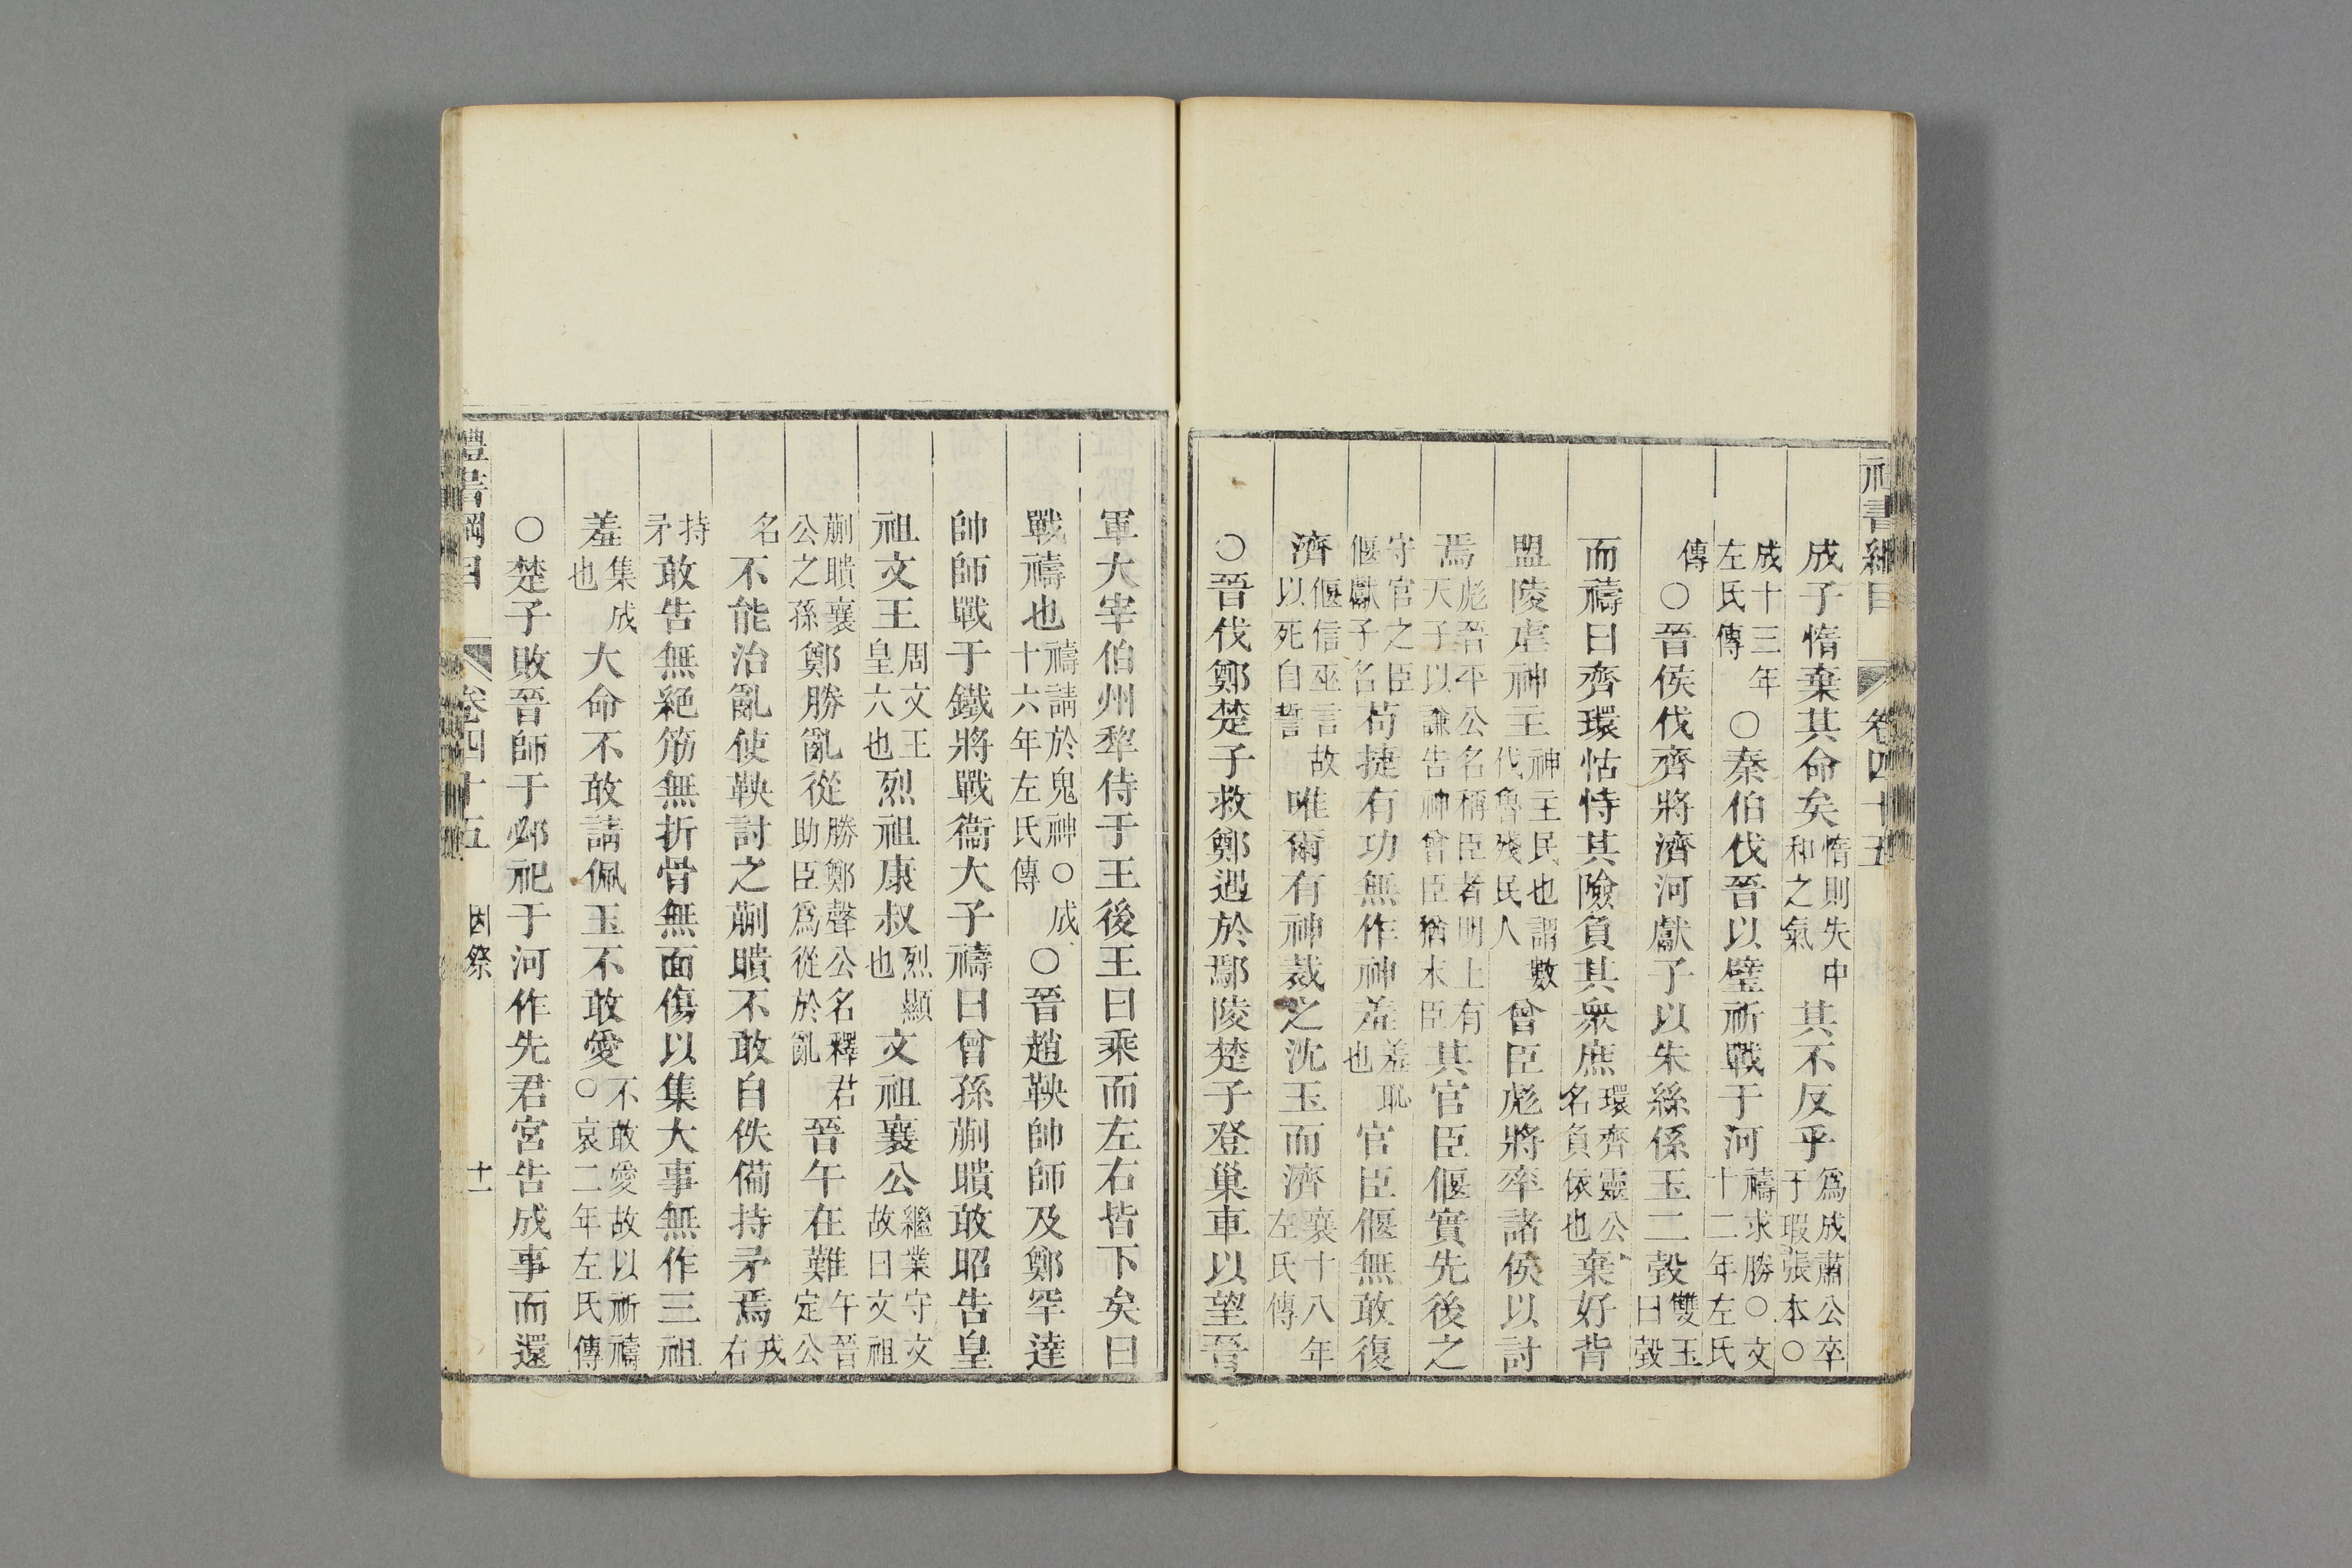 禮書綱目　卷四十五
成子惰棄其命矣惰則失中和之氣其不反乎爲成肅公卒于瑕張本○
成十三年左氏傳○秦伯伐晉以璧祈戰于河禱求勝○文十二年左氏
傳○晉侯伐齊將濟河獻子以朱絲係玉二瑴雙玉曰瑴
而禱曰齊環怙恃其險負其衆庶環齊靈公名負依也棄好背
盟陵虐神主神主民也謂數伐魯殘民人曾臣彪將率諸侯以討
焉彪晉平公名稱臣者明上有天子以謙告神曾臣猶末臣其官臣偃實先後之
守官之臣偃獻子名苟捷有功無作神羞羞恥也官臣偃無敢復
濟偃信巫言故以死自誓唯爾有神裁之沈玉而濟襄十八年左氏傳
○晉伐鄭楚子救鄭遇於鄢陵楚子登巢車以望晉
軍大宰伯州犂侍于王後王曰乘而左右皆下矣曰
戰禱也禱請於鬼神○成十六年左氏傳○晉趙鞅帥師及鄭罕達
帥師戰于鐵將戰衞大子禱曰曾孫蒯聵敢昭告皇
祖文王周文王皇六也烈祖康叔烈顯也文祖襄公繼業守文故曰文祖
蒯聵襄公之孫鄭勝亂從勝鄭聲公名釋君助臣爲從於亂晉午在難午晉定公
名不能治亂使鞅討之蒯聵不敢自佚備持矛焉戎右
持矛敢告無絕筋無折骨無面傷以集大事無作三祖
羞集成也大命不敢請佩玉不敢愛不敢愛故以祈禱○哀二年左氏傳
○楚子敗晉師于邲祀于河作先君宮告成事而還
禮書綱目　卷四十五　因祭　十一